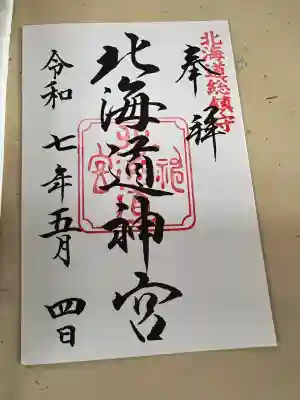 北海道総鎮守
奉拝
北海道神宮
令和七年五月四日